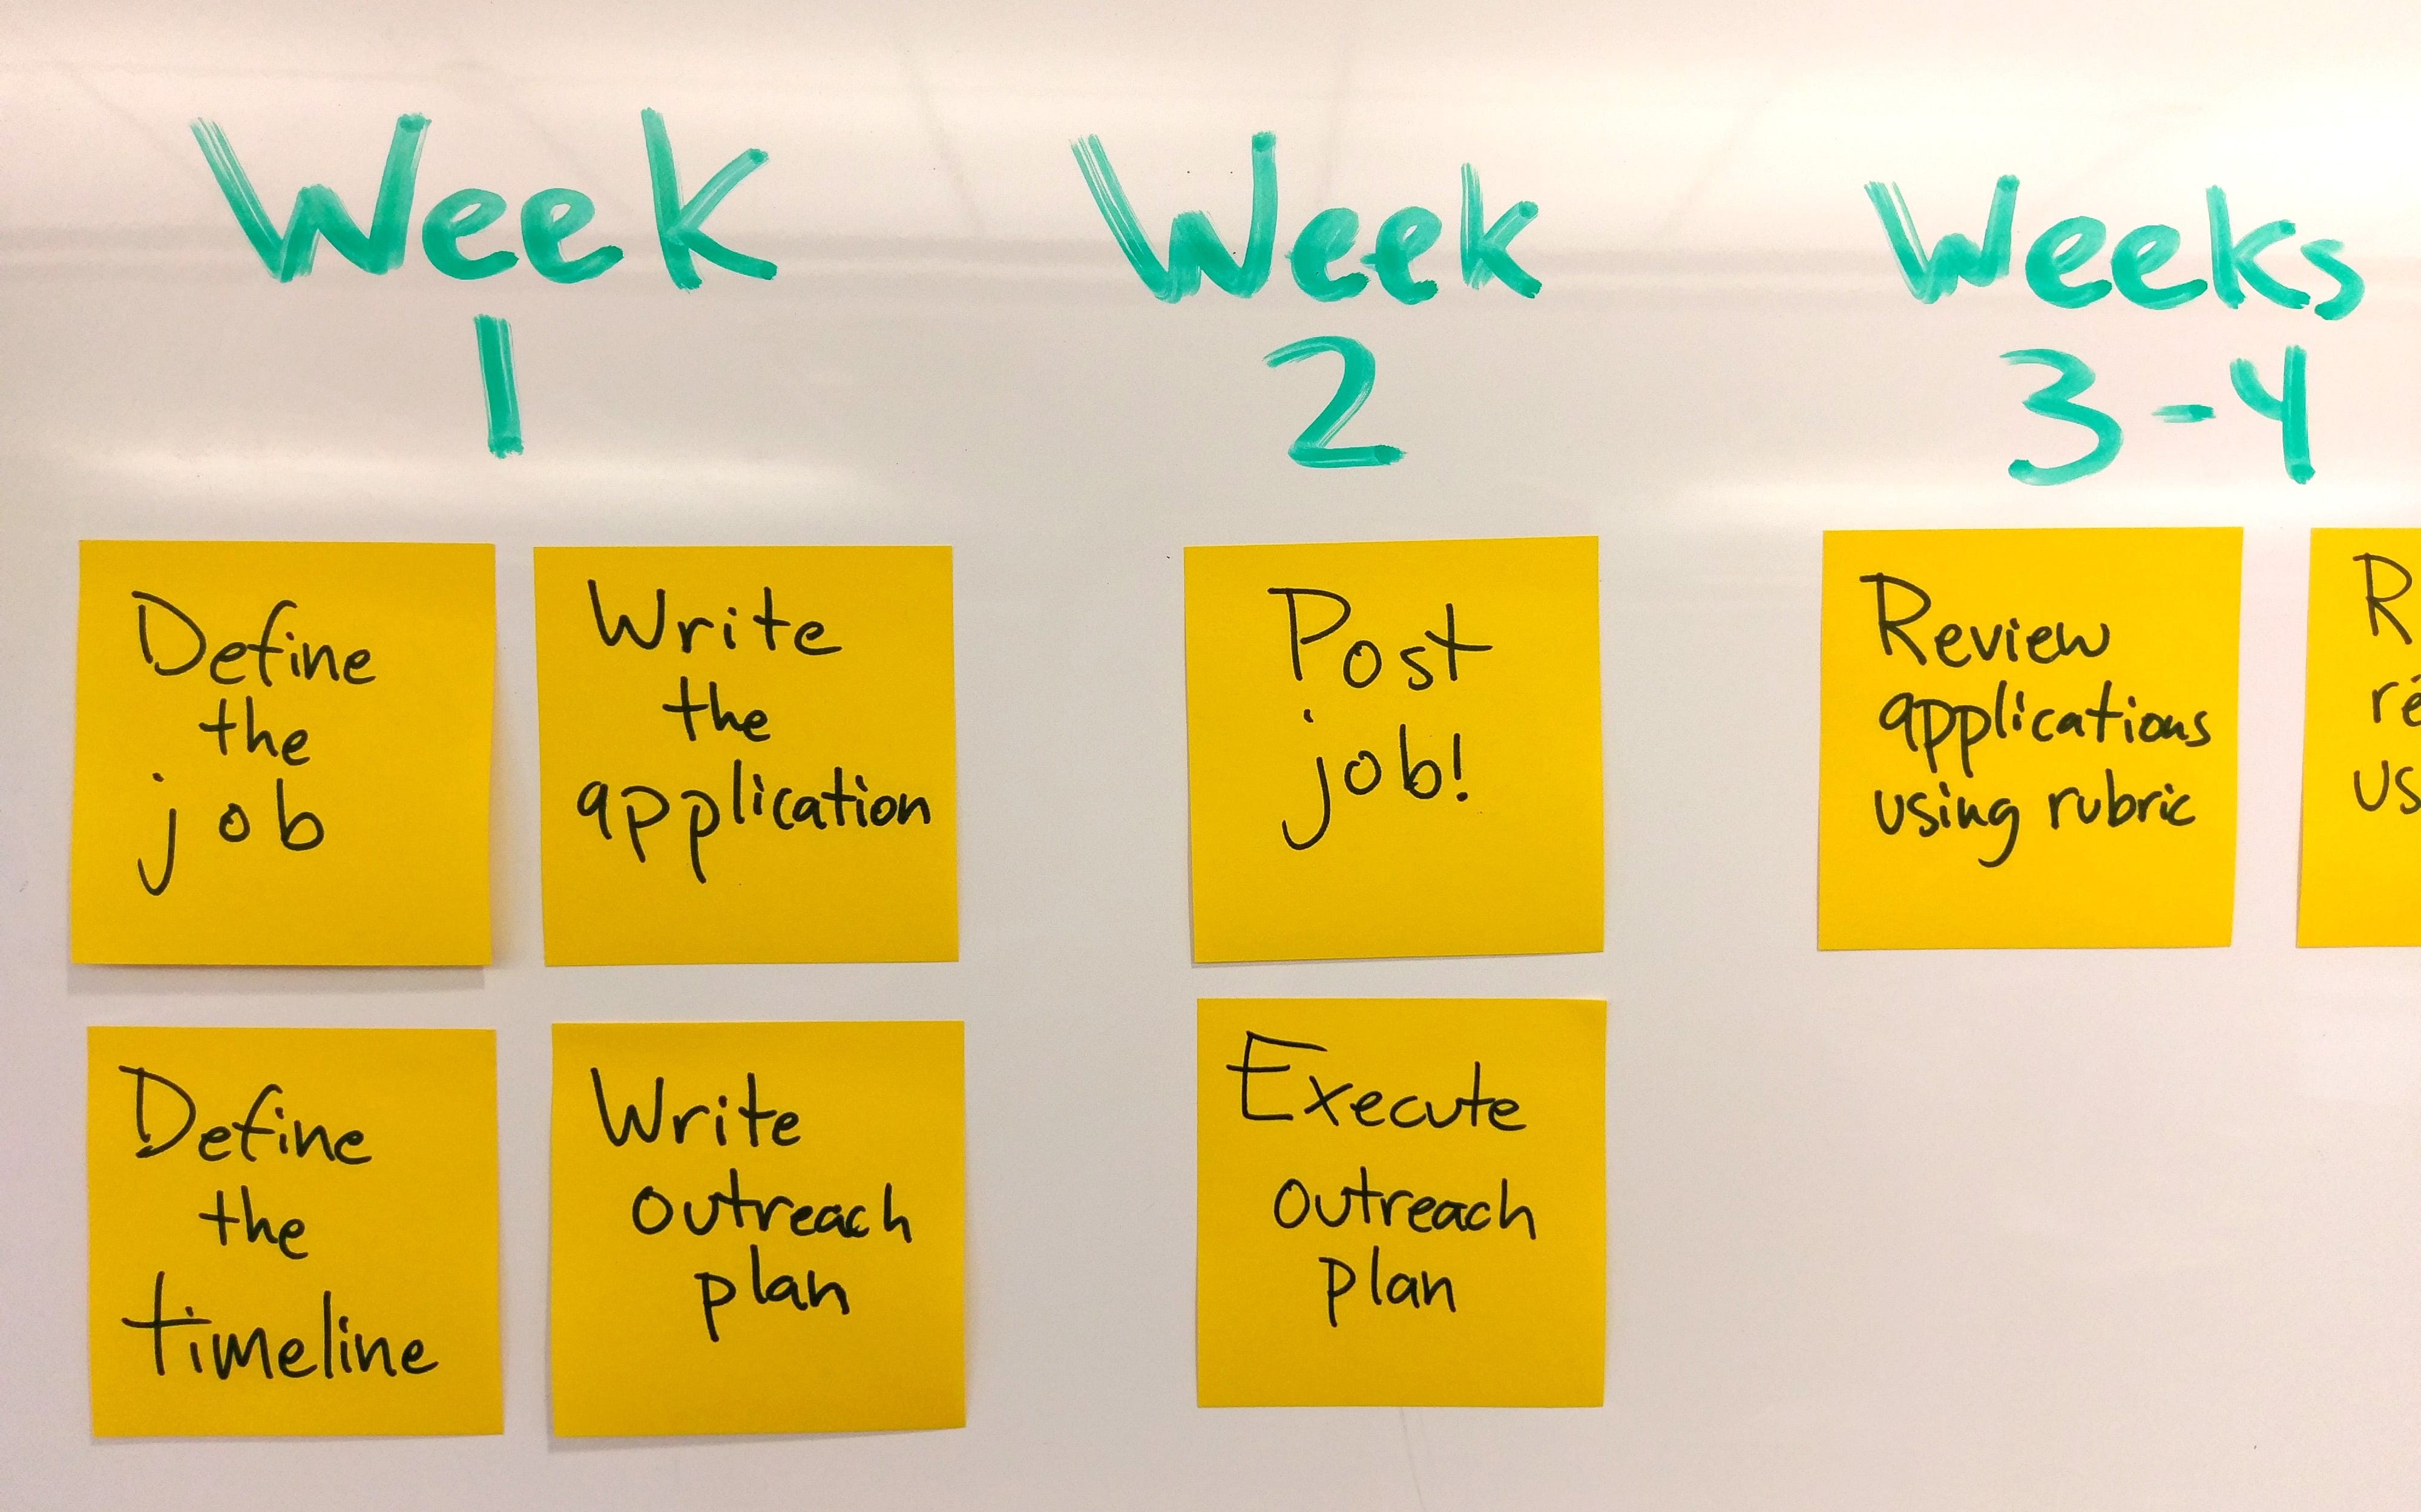 Week
1
Week
2
Weeks
3-4
Define
the
job
Write
the
application
Define
the
timeline
Write
outreach
plan
Post
job!
Execute
outreach
plan
Review
applications
using rubric